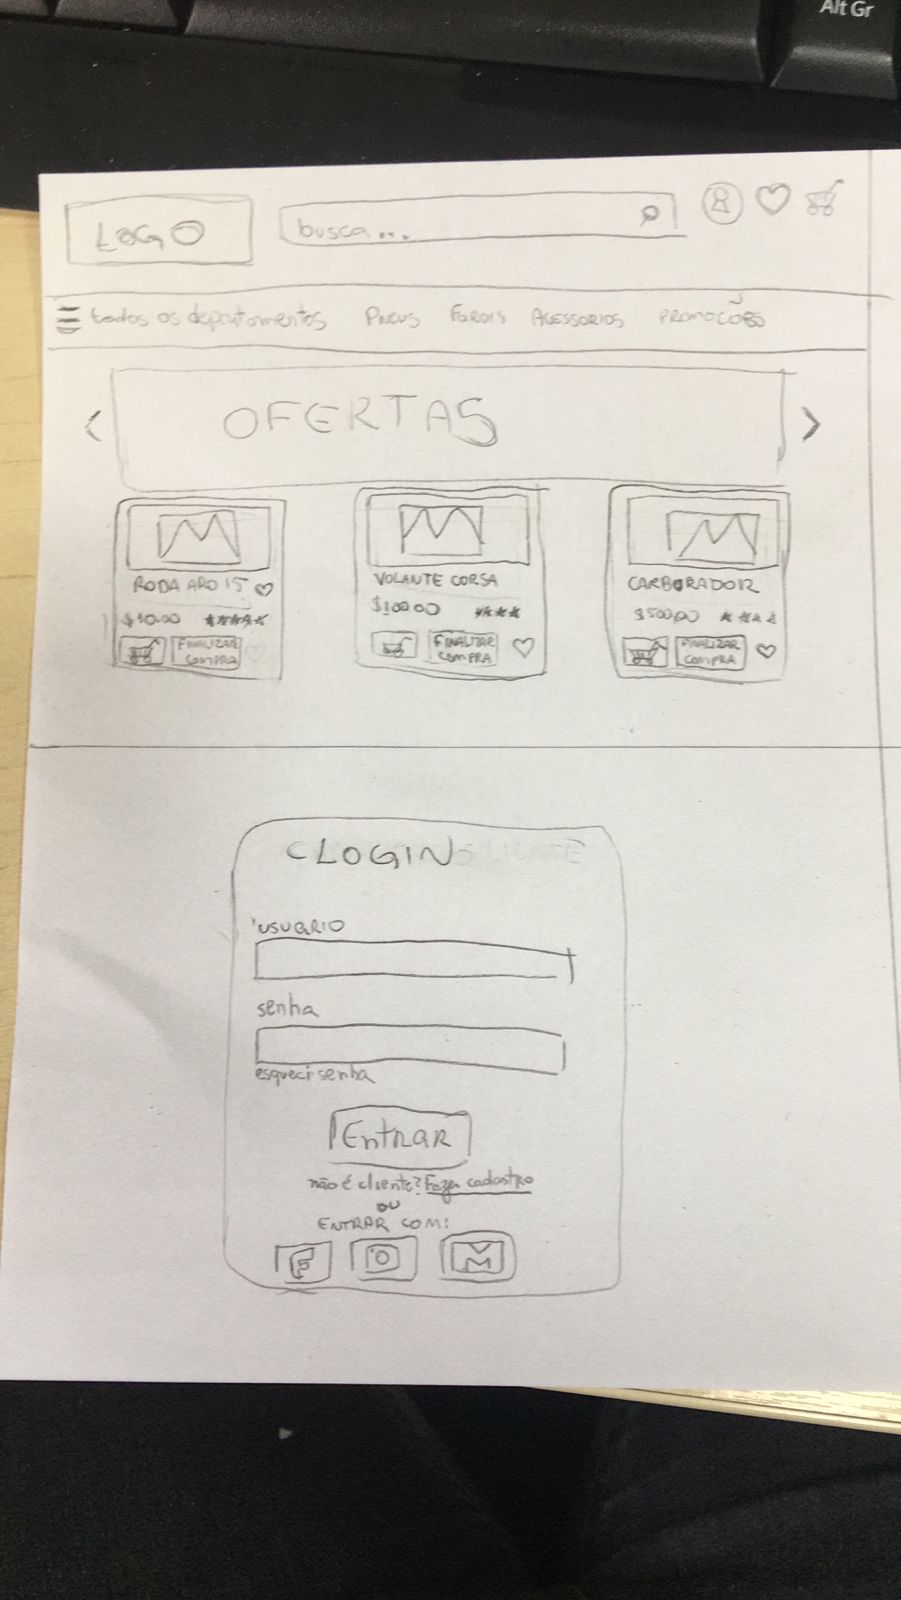 Alt Gr
LOGO
busca...
todos os departamentos Pneus Farois Acessorios Promoções
OFERTAS
RODA ARO 15
$10.00 ★★★★★
FINALIZAR
COMPRA
VOLANTE CORSA
$100 00 ★★★★
FINALIZAR
COMPRA
CARBORADOR
$500,00 ★★★★
FINALIZAR
COMPRA
LOGIN
usuario
senha
esqueci senha
Entrar
não é cliente? Fazer cadastro
ou
ENTRAR COM:
F
M